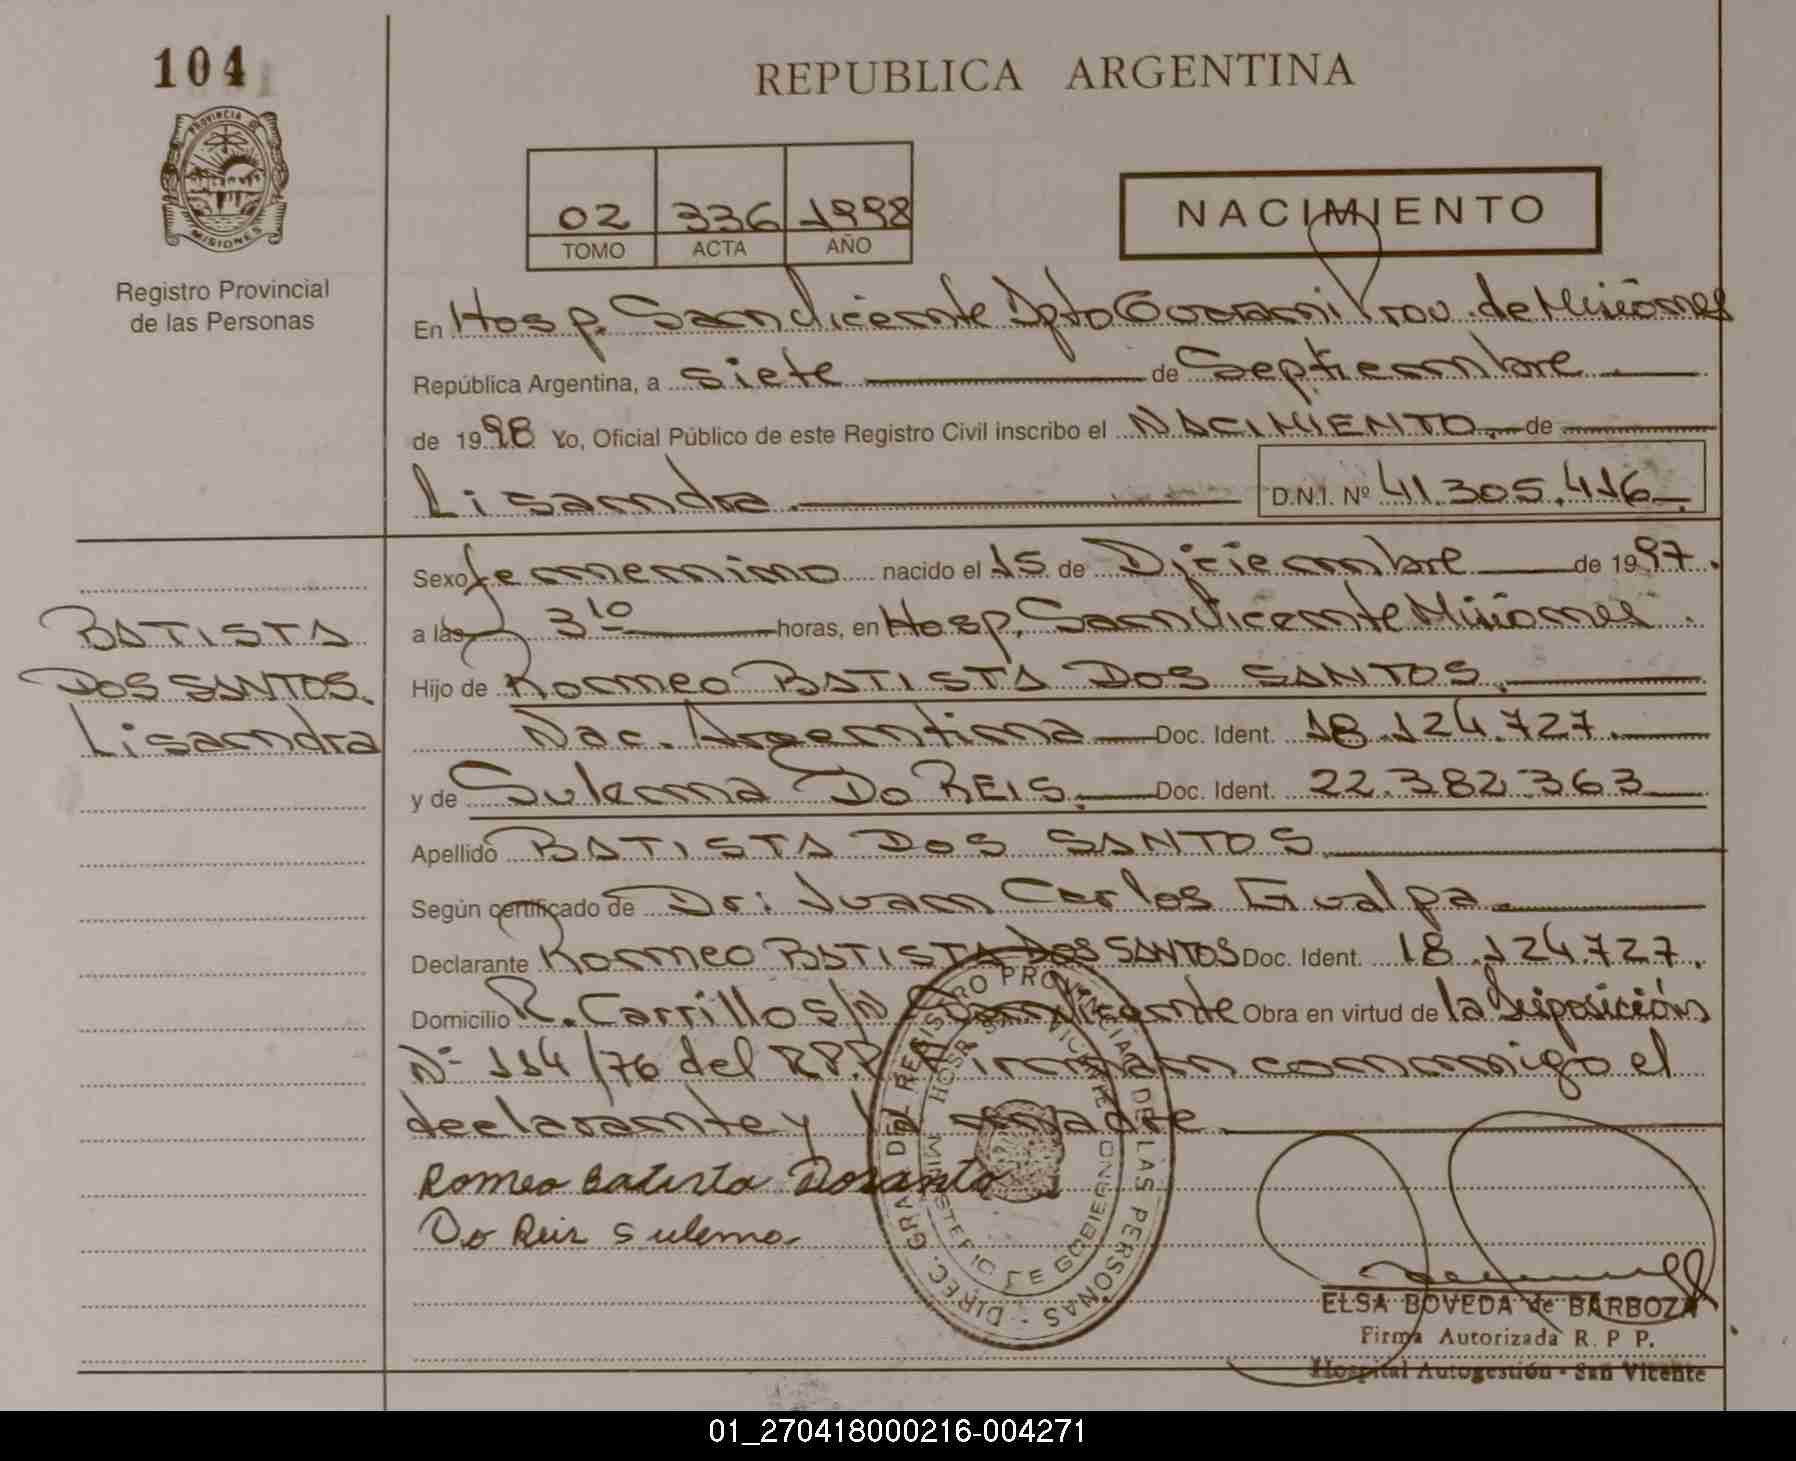 104
REPUBLICA ARGENTINA
PROVINCIA DE
MISIONES
Registro Provincial
de las Personas
02 336 1998
TOMO ACTA AÑO
NACIMIENTO
En Hosp. San Vicente Dpto Guarani Prov. de Misiones
República Argentina, a siete de Septiembre
de 1998 Yo, Oficial Público de este Registro Civil inscribo el NACIMIENTO. de
Lisandra. D.N.I. Nº 41.305.416
BATISTA
DOS SANTOS.
Lisandra
Sexo femenino nacido el 15 de Diciembre de 1997.
a las 3 10 horas, en Hosp. San Vicente Misiones.
Hijo de Romeo BATISTA DOS SANTOS.
Nac. Argentina Doc. Ident. 18.124.727.
y de Sulema Do REIS. Doc. Ident. 22.382.363
Apellido BATISTA DOS SANTOS
Según certificado de Dr: Juan Carlos Gualpa.
Declarante Romeo BATISTA DOS SANTOS Doc. Ident. 18.124.727.
Domicilio R. Carrillo S/N San Vicente Obra en virtud de la Disposición
Nº 114/76 del R.P.P. Firman conmigo el
declarante y la madre
Romeo Batista Dosanto
Do Reis Sulema
DIREC. GRAL DEL REGISTRO PROVINCIAL DE LAS PERSONAS -
HOSP. SAN VICENTE
MINISTERIO DE GOBIERNO
ELSA BOVEDA de BARBOZA
Firma Autorizada R. P P.
Hospital Autogestión - San Vicente
01_270418000216-004271